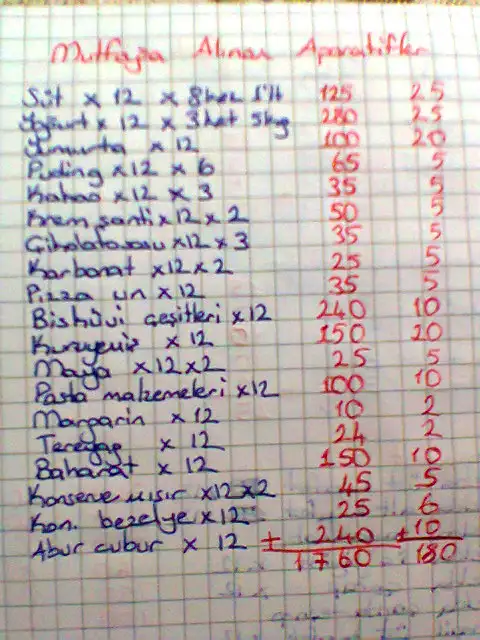 Mutfağa Alınan Aparatifler
Süt x 12 x 8 kez 1 lt 125 25
Yoğurt x 12 x 3 ket 5 kg 280 25
Yumurta x 12 100 20
Puding x 12 x 6 65 5
Kakao x 12 x 3 35 5
Krem şanti x 12 x 2 50 5
Çikolata sosu x 12 x 3 35 5
Karbonat x 12 x 2 25 5
Pizza un x 12 35 5
Bisküvi çeşitleri x 12 240 10
Kuruyemiş x 12 150 20
Maya x 12 x 2 25 5
Pasta malzemeleri x 12 100 10
Margarin x 12 10 2
Tereyağ x 12 24 2
Baharat x 12 150 10
Konserve mısır x 12 x 2 45 5
Kon. bezelye x 12 25 6
Abur cubur x 12 ± 240 ± 10
1760 180